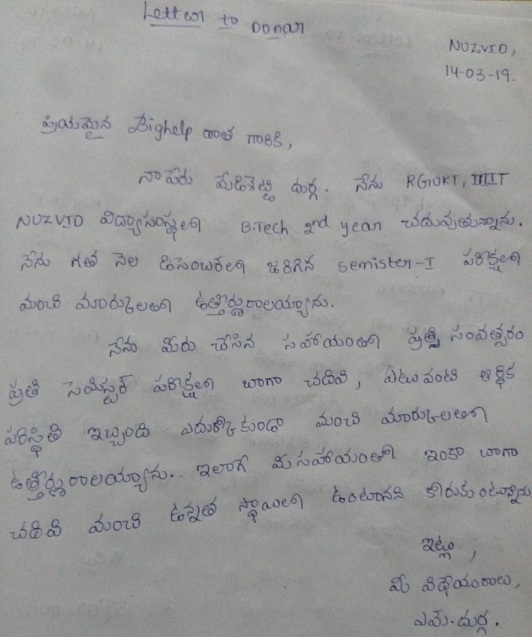 Letter to Donar
NUZVID,
14-03-19.
ప్రియమైన Bighelp దాత గారికి,
నా పేరు మేడిశెట్టి దుర్గ. నేను RGUKT, IIIT
NUZVID విద్యాసంస్థలో B.Tech 2nd year చదువుతున్నాను.
నేను గత నెల డిసెంబర్‌లో జరిగిన semister-I పరీక్షలో
మంచి మార్కులతో ఉత్తీర్ణురాలయ్యాను.
నేను మీరు చేసిన సహాయంతో ప్రతి సంవత్సరం
ప్రతి సెమిస్టర్ పరీక్షలో బాగా చదివి, ఎటువంటి ఆర్థిక
పరిస్థితి ఇబ్బంది ఎదుర్కొకుండా మంచి మార్కులతో
ఉత్తీర్ణురాలయ్యాను. ఇలాగే మీ సహాయంతో ఇంకా బాగా
చదివి మంచి ఉన్నత స్థాయిలో ఉంటానని కోరుకుంటున్నాను
ఇట్లు,
మీ విధేయురాలు,
ఎమ్. దుర్గ.